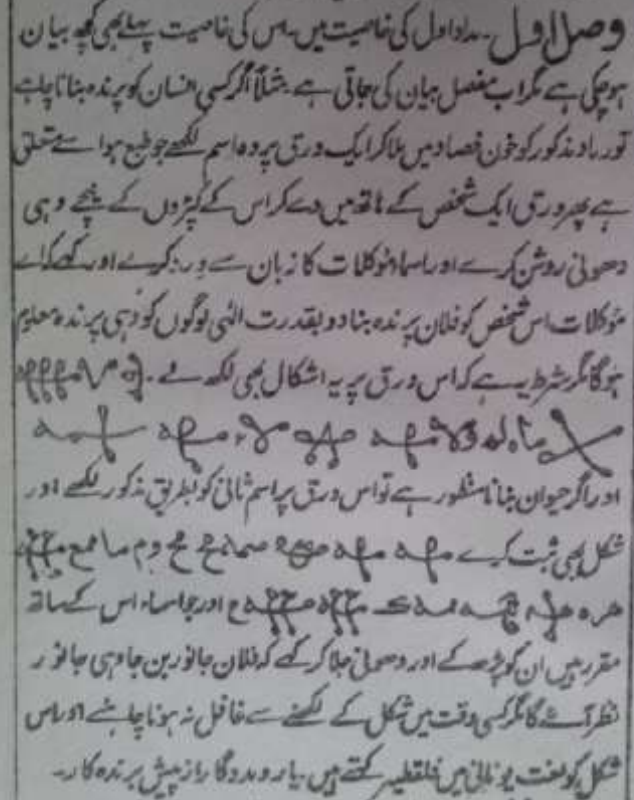 وصل اول ۔ مداد اول کی خاصیت میں ۔ اس کی خاصیت پہلے بھی کچھ بیان
ہو چکی ہے مگر اب مفصل بیان کی جاتی ہے مثلاً اگر کسی انسان کو پرندہ بنانا چاہے
تو مداد مذکور کو خون فصاد میں ملا کر ایک ورق پر وہ اسم لکھے جو طبع ہوا سے متعلق
ہے پھر ورق ایک شخص کے ہاتھ میں دے کر اس کے کپڑوں کے نیچے وہی
دھونی روشن کرے اور اسماء موکلات کا زبان سے ورد کرے اور کہے کہ اے
موکلات اس شخص کو فلان پرندہ بنا دو بقدرت الٰہی لوگوں کو وہی پرندہ معلوم
ہوگا مگر شرط یہ ہے کہ اس ورق پر یہ اشکال بھی لکھ لے ۔
اور اگر حیوان بنانا منظور ہے تو اس ورق پر اسم ثانی کو بطریق مذکور لکھے اور
شکل بھی ثبت کرے
اور جو اسماء اس کے ساتھ
مقرر ہیں ان کو پڑھ کے اور دھونی جلا کر کہے کہ فلان جانور بن جا وہی جانور
نظر آئے گا مگر کسی وقت میں شکل کے لکھنے سے غافل نہ ہونا چاہئے اور اس
شکل کو لغت یونانی میں کہتے ہیں ۔ یار و مددگار از پیش برندہ کار ۔